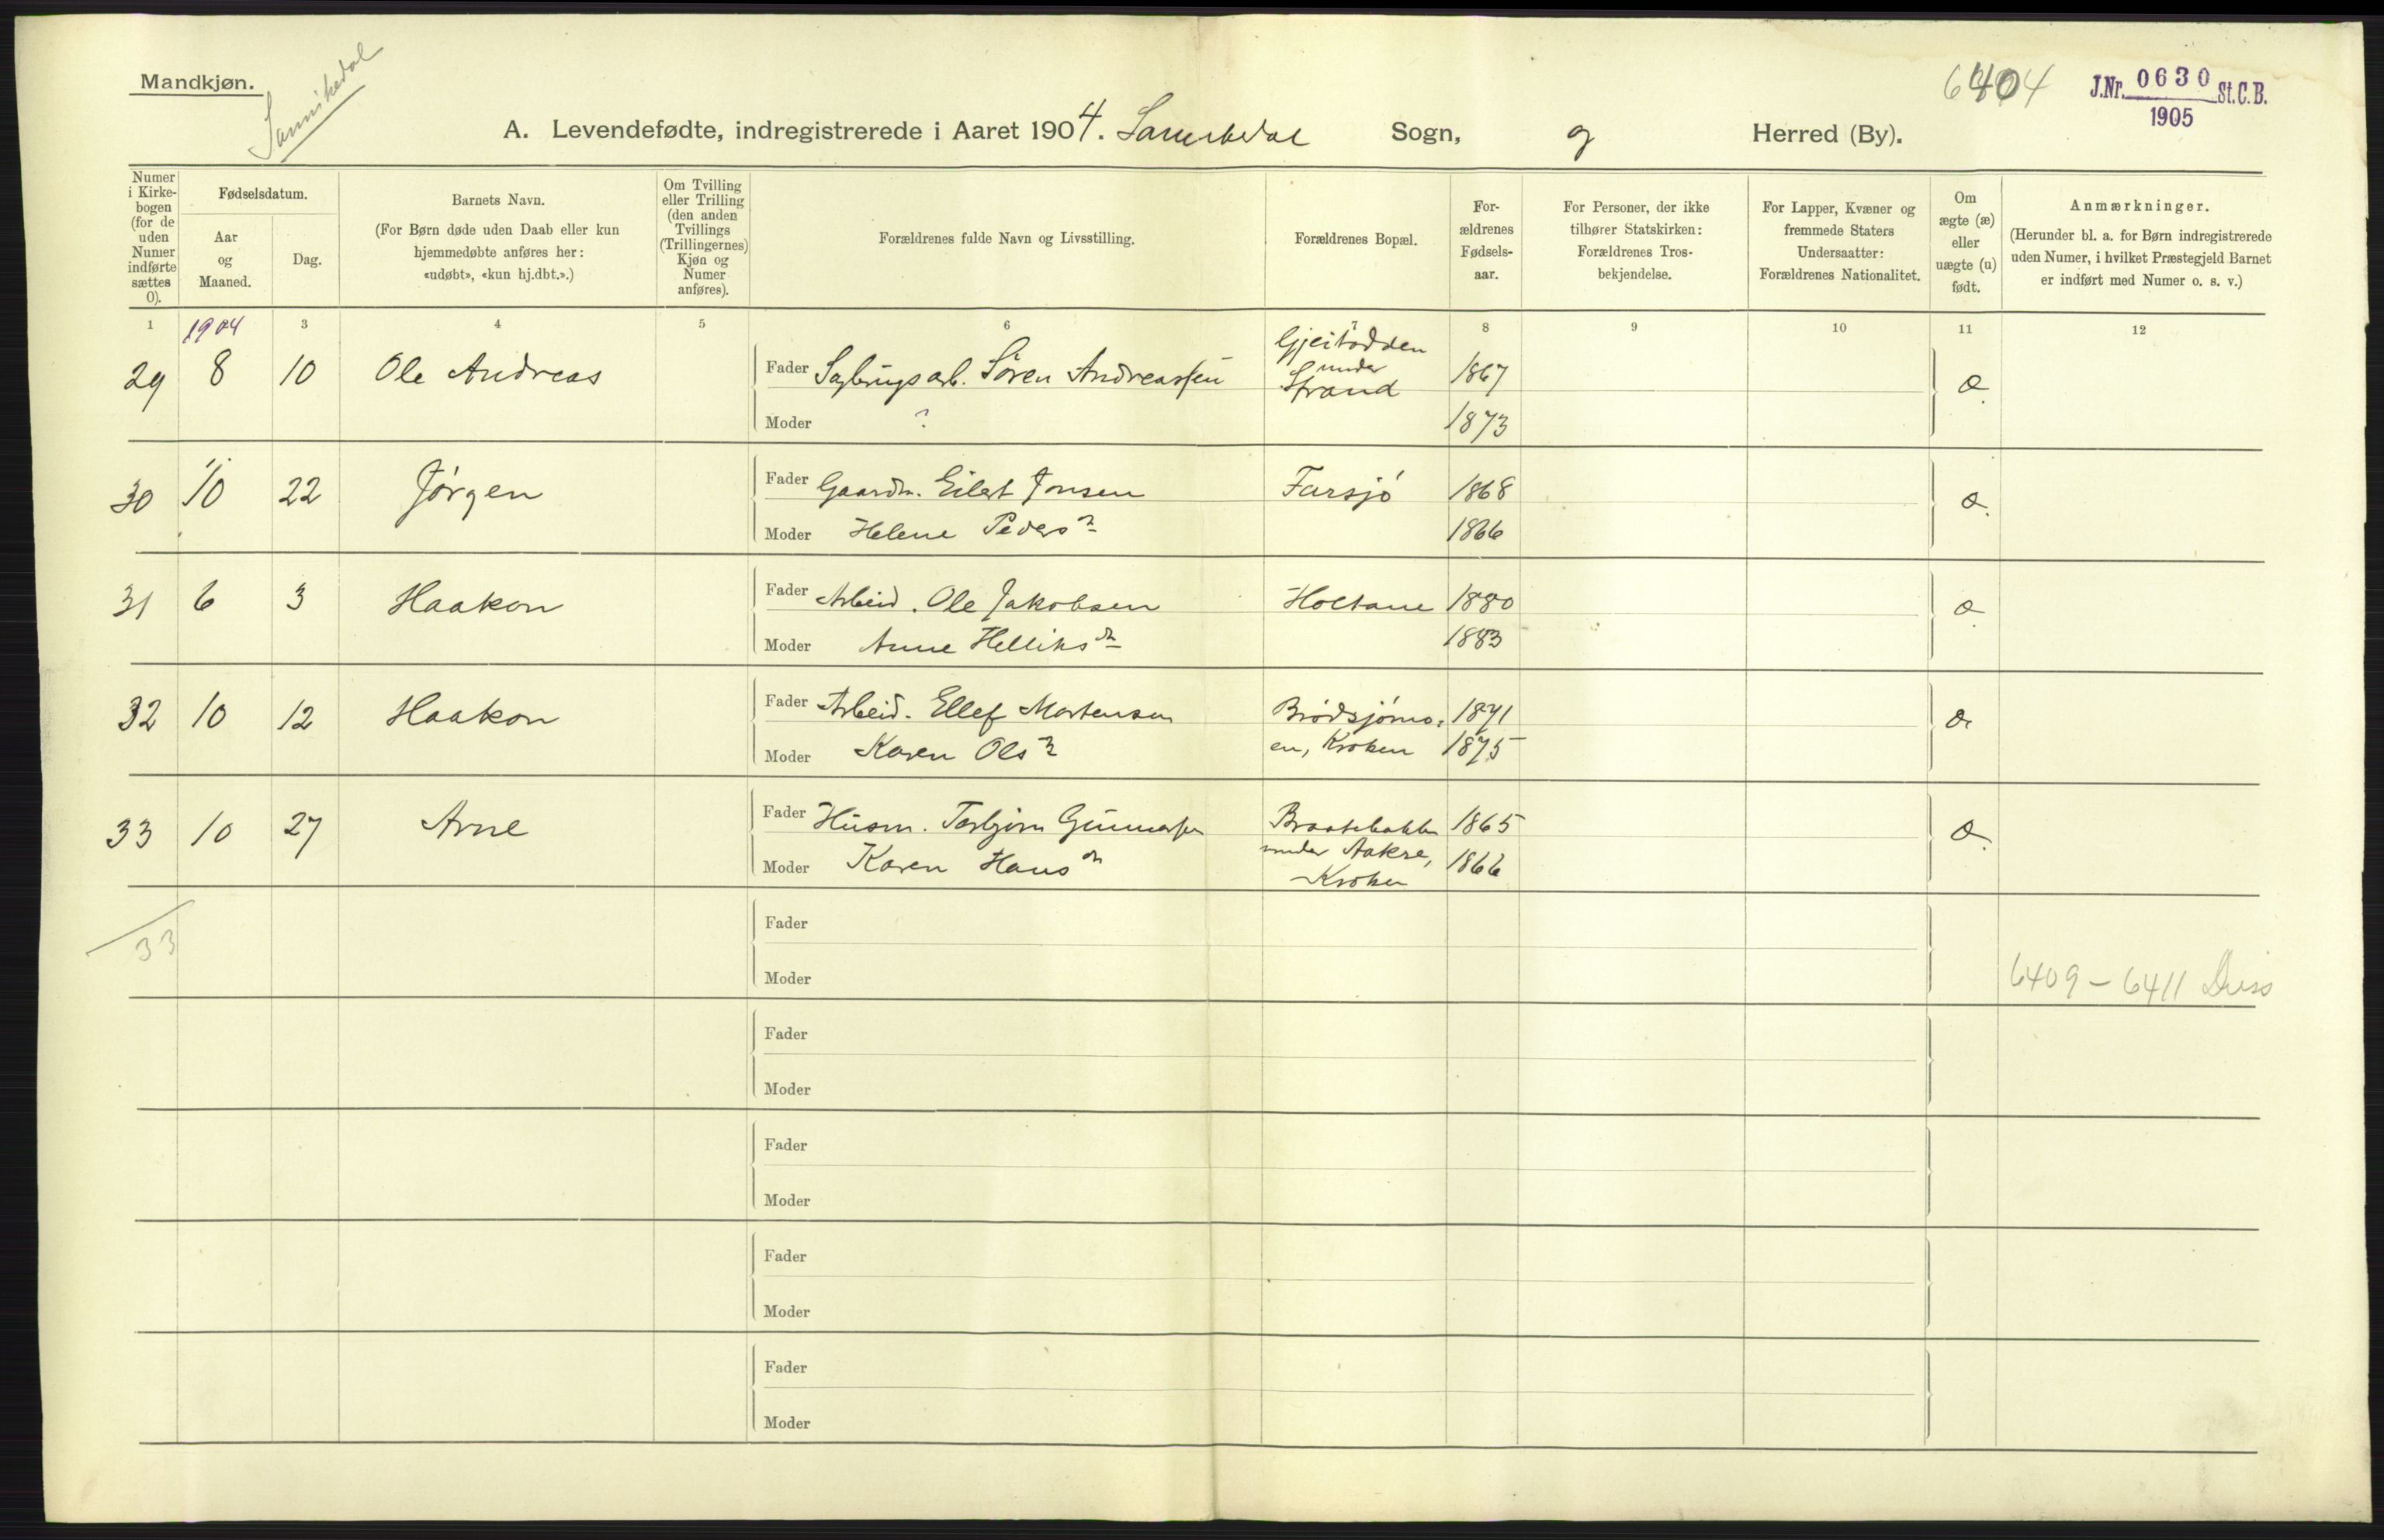 Mandkjøn.
Sannikedal
6404
J.Nr. 0630 St.C.B.
1905
A. Levendefødte, indregistrerede i Aaret 1904. Sannikedal Sogn, og Herred (By).
Numer i Kirke-bogen (for de uden Numer indførte sættes 0).
Fødselsdatum.
Aar og Maaned.
Dag.
Barnets Navn.
(For Børn døde uden Daab eller kun hjemmedøbte anføres her: «udøbt», «kun hj.dbt.».)
Om Tvilling eller Trilling (den anden Tvillings (Trillingernes) Kjøn og Numer anføres).
Forældrenes fulde Navn og Livsstilling.
Forældrenes Bopæl.
For-ældrenes Fødsels-aar.
For Personer, der ikke tilhører Statskirken: Forældrenes Tros-bekjendelse.
For Lapper, Kvæner og fremmede Staters Undersaatter: Forældrenes Nationalitet.
Om ægte (æ) eller uægte (u) født.
Anmærkninger.
(Herunder bl. a. for Børn indregistrerede uden Numer, i hvilket Præstegjeld Barnet er indført med Numer o. s. v.)
1 1904 3 4 5 6 7 8 9 10 11 12
29 8 10 Ole Andreas Fader Sagbrugsarb. Søren Andreassen Gjeitodden under Strand 1867 æ.
Moder ? 1873
30 10 22 Jørgen Fader Gaardm. Eilert Jonsen Farsjø 1868 æ.
Moder Helene Pedersn 1866
31 6 3 Haakon Fader Arbeid. Ole Jakobsen Holtane 1880 æ.
Moder Anne Helliksdn 1883
32 10 12 Haakon Fader Arbeid. Ellef Mortensen Brødsjømo- 1871 æ
Moder Karen Olsn en, Kroken 1875
33 10 27 Arne Fader Husm. Torbjørn Gunnarsen Braatebakken 1865 æ.
Moder Karen Hansdn under Aakre, Kroken 1866
33
Fader
Moder 6409-6411 Diss
Fader
Moder
Fader
Moder
Fader
Moder
Fader
Moder